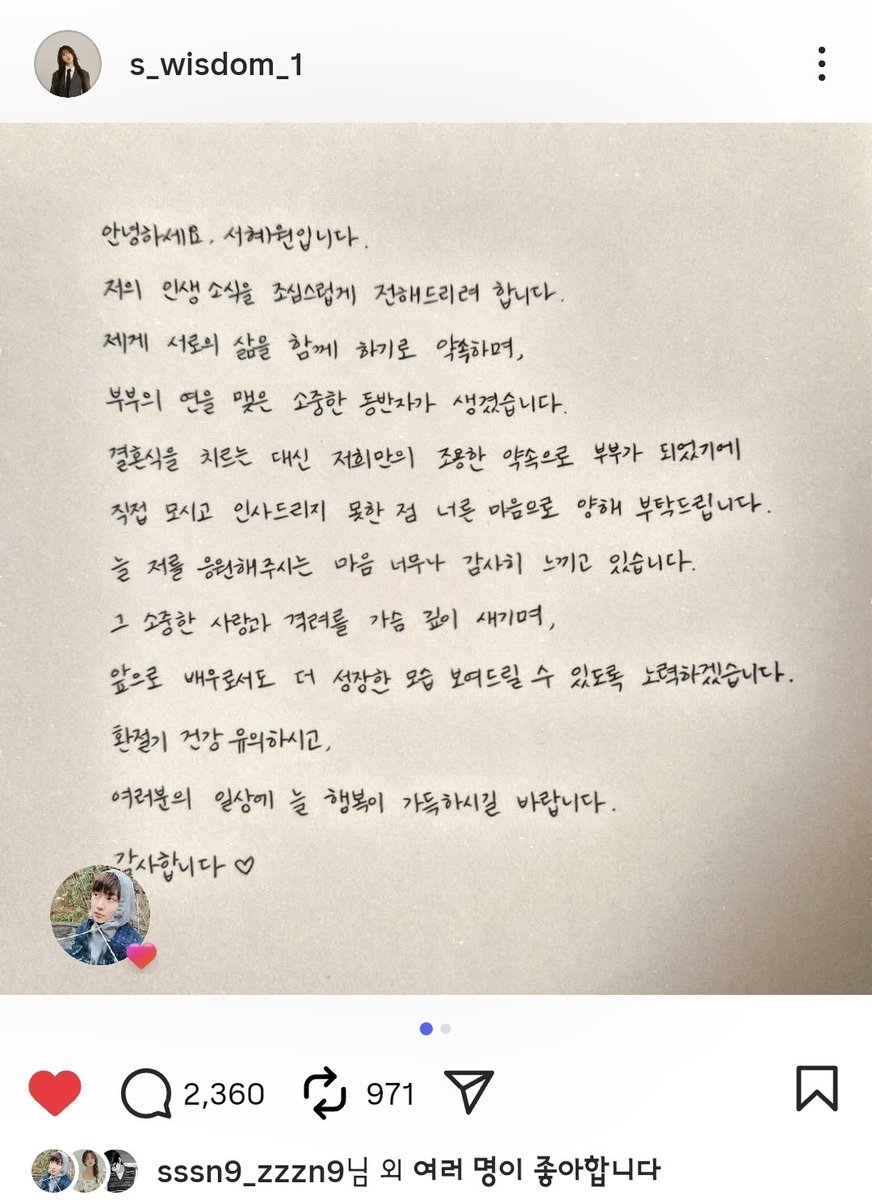 s_wisdom_1
안녕하세요, 서혜원입니다.
저의 인생 소식을 조심스럽게 전해드리려 합니다.
제게 서로의 삶을 함께 하기로 약속하며,
부부의 연을 맺은 소중한 동반자가 생겼습니다.
결혼식을 치르는 대신 저희만의 조용한 약속으로 부부가 되었기에
직접 모시고 인사드리지 못한 점 너른 마음으로 양해 부탁드립니다.
늘 저를 응원해주시는 마음 너무나 감사히 느끼고 있습니다.
그 소중한 사랑과 격려를 가슴 깊이 새기며,
앞으로 배우로서도 더 성장한 모습 보여드릴 수 있도록 노력하겠습니다.
환절기 건강 유의하시고,
여러분의 일상에 늘 행복이 가득하시길 바랍니다.
감사합니다 ♡
2,360 971
sssn9_zzzn9님 외 여러 명이 좋아합니다